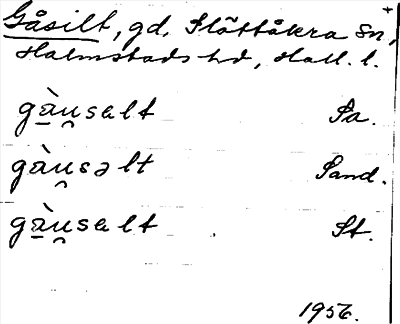 Gåsilt, gd. Slättåkra sn,
Halmstads hd, Hall. l.
gà̠u̯salt Sa.
gàu̯səlt Sand.
gà̠u̯salt St.
1956.